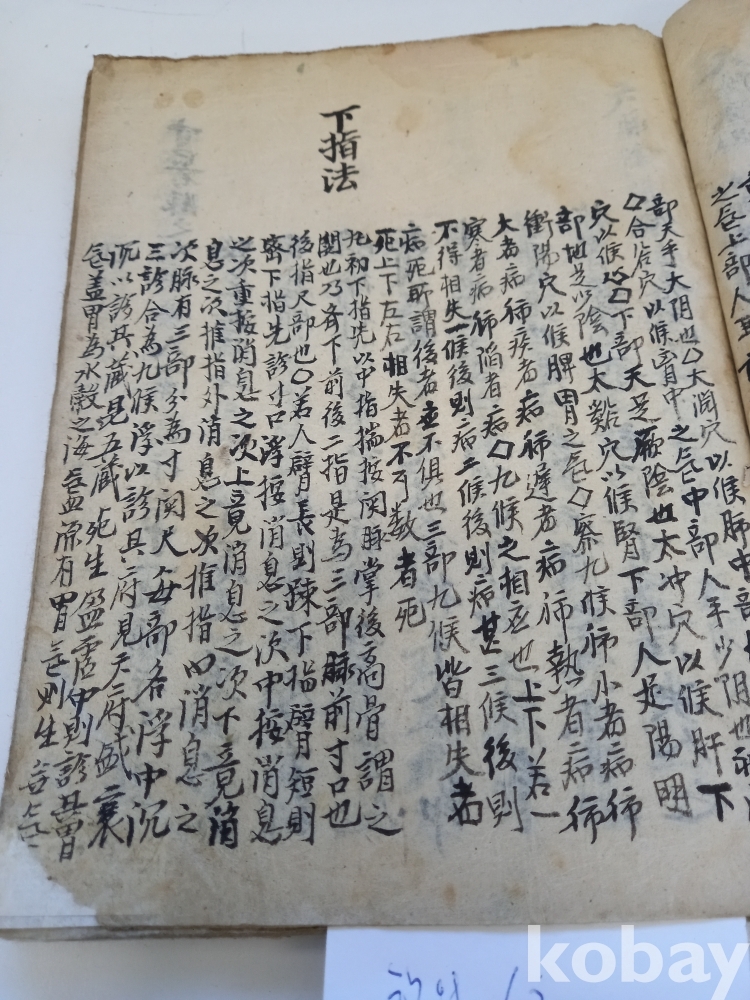 部天手太阴也〇太渊穴以候肺中部
〇合谷穴以候胃中之气中部人手少阴也
穴以候心〇下部天足厥陰也太冲穴以候肝下
部地足少陰也太谿穴以候腎下部人足陽明
衝陽穴以候脾胃之气〇察九候獨小者病獨
大者病獨疾者病獨遲者病獨熱者病獨
寒者病獨陷者病〇九候之相应也上下若一
不得相失一候後則病二候後則病甚三候後則
病死所謂後者应不俱也三部九候皆相失者
死上下左右相失者不可数者死
下指法
凡初下指先以中指揣按関脉掌後高骨謂之
関也乃齐下前後二指是為三部脉前寸口也
後指尺部也〇若人臂長則疎下指臂短則
密下指先診寸口浮按消息之次中按消息
之次重按消息之次上竟消息之次下竟消
息之次推指外消息之次推指内消息之
次脉有三部分為寸関尺每部各浮中沉
三診合為九候浮以診其府見天府盛衰
沉以診其藏見五藏死生盈虚中則診其胃
气盖胃為水穀之海 有胃气則生